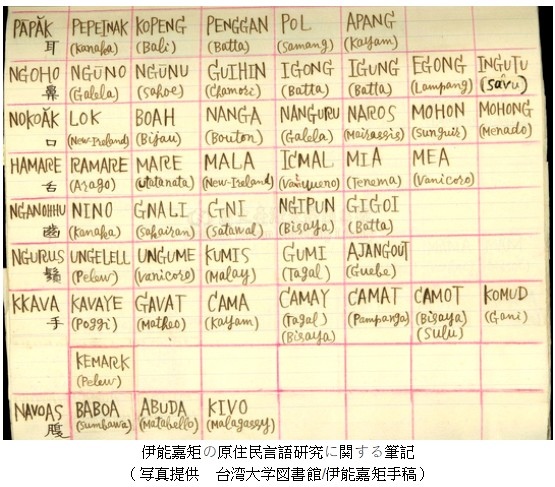 PAPĂK PEPEINAK KOPENG PENGGAN POL APANG
耳 (Kanaka) (Bali) (Batta) (Samang) (Kayam)
NGOHO NGŪNO NGŪNU GUIHIN IGONG IGUNG EGONG INGUTU
鼻 (Galela) (Sahoe) (Chamori) (Batta) (Batta) (Lampang) (Savu)
NOKOĂK LOK BOAH NANGA NANGURU NAROS MOHON MOHONG
口 (New-Ireland) (Bijau) (Bouton) (Galela) (Meirassis) (Sunguir) (Menado)
HAMARE RAMARE MARE MALA MIA MEA
舌 (Arago) (Utatanata) (New-Ireland) (Tenema) (Vanicoro)
NGANOHHU NINO GNALI GNI NGIPUN GIGOI
歯 (Kanaka) (Sahairan) (Satawal) (Bisaya) (Batta)
NGURUS UNGELELL UNGUME KUMIS GUMI AJANGOUT
鬚 (Pelew) (Vanicoro) (Malay) (Tagal) (Guebe)
KKAVA KAVAYE GAVAT CAMA CAMAY CAMAT CAMOT KOMUD
手 (Poggi) (Motheo) (Kayam) (Tagal) (Pampanga) (Bisaya) (Gani)
(Bisaya) (Sulu)
KEMARK
(Pelew)
NAVOAS BABOA ABUDA KIVO
腹 (Sumbawa) (Matabello) (Malagassy)
伊能嘉矩の原住民言語研究に関する筆記
（写真提供　台湾大学図書館/伊能嘉矩手稿）